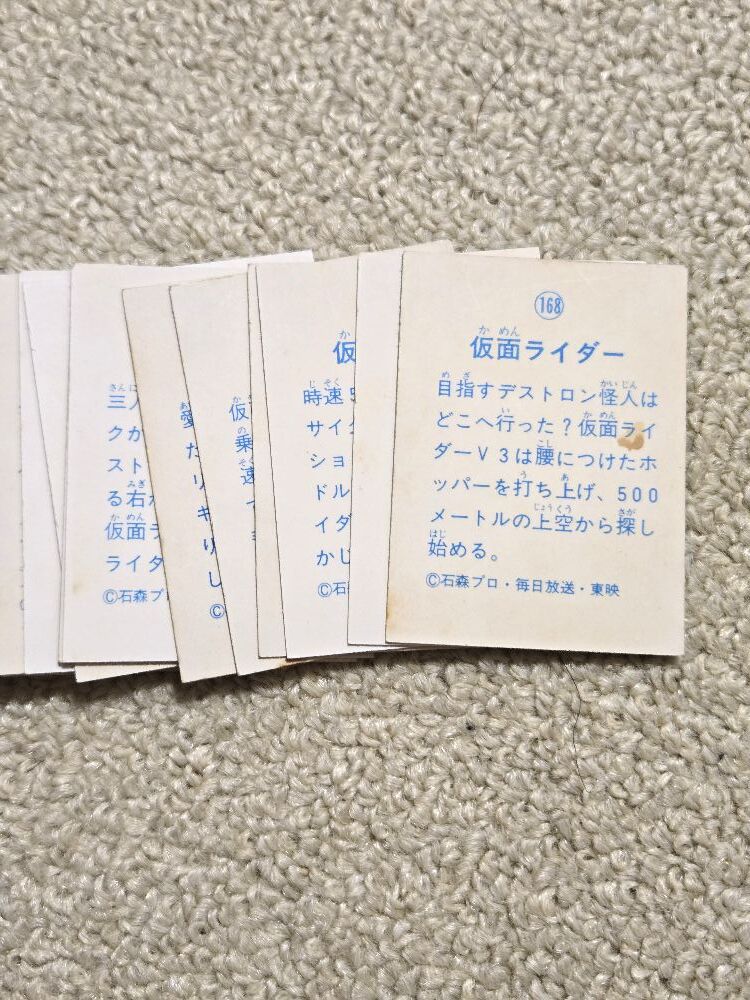 三
クか
スト
る右
仮面ラ
ライダ
©石森プ
愛
た
リ
キ
り
し
©
仮
乗
速
仮
時速
サイ
ショ
ドル
イダ
かし
©石
168
仮面ライダー
目指すデストロン怪人は
どこへ行った？仮面ライ
ダーV3は腰につけたホ
ッパーを打ち上げ、500
メートルの上空から探し
始める。
©石森プロ・毎日放送・東映